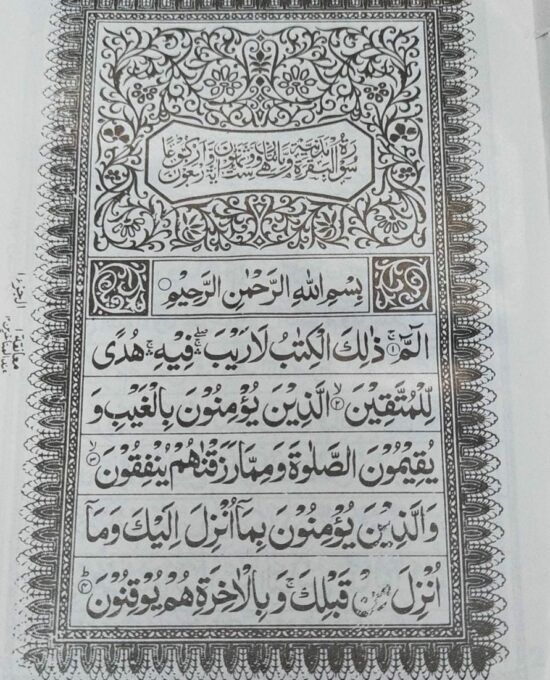 سورة البقرة مدنية وهي مائتان وست وثمانون آية وأربعون ركوعا
بِسْمِ اللهِ الرَّحْمٰنِ الرَّحِيْمِ
الٓمّٓ ۚ﴿۱﴾ ذٰلِكَ الْكِتٰبُ لَا رَيْبَ ۛۖ فِيْهِ ۛۚ هُدًى
لِّلْمُتَّقِيْنَ ۙ﴿۲﴾ الَّذِيْنَ يُؤْمِنُوْنَ بِالْغَيْبِ وَ
يُقِيْمُوْنَ الصَّلٰوةَ وَمِمَّا رَزَقْنٰهُمْ يُنْفِقُوْنَ ۙ﴿۳﴾
وَالَّذِيْنَ يُؤْمِنُوْنَ بِمَآ اُنْزِلَ اِلَيْكَ وَمَآ
اُنْزِلَ مِنْ قَبْلِكَ ۚ وَبِالْاٰخِرَةِ هُمْ يُوْقِنُوْنَ ؕ﴿۴﴾
الجزء ۱
معانقة ۱